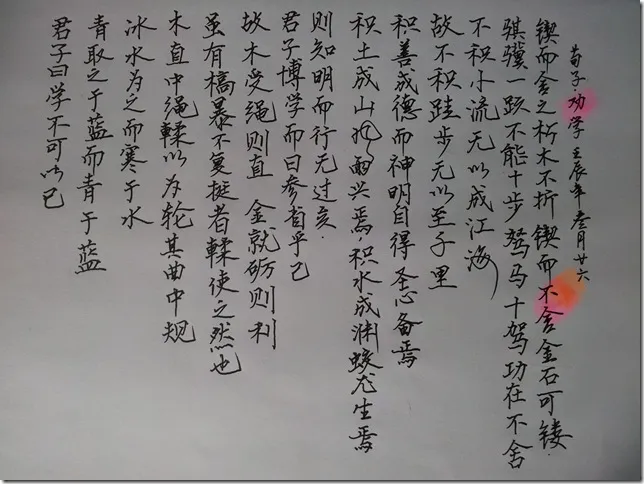 君子曰学不可以已
青取之于蓝而青于蓝
冰水为之而寒于水
木直中绳輮以为轮其曲中规
虽有槁暴不复挺者輮使之然也
故木受绳则直 金就砺则利
君子博学而日参省乎己
则知明而行无过矣.
积土成山风雨兴焉,积水成渊蛟龙生焉
积善成德而神明自得圣心备焉
故不积跬步无以至千里
不积小流无以成江海
骐骥一跃不能十步驽马十驾功在不舍
锲而舍之朽木不折锲而不舍金石可镂.
荀子劝学 壬辰年叁月廿六